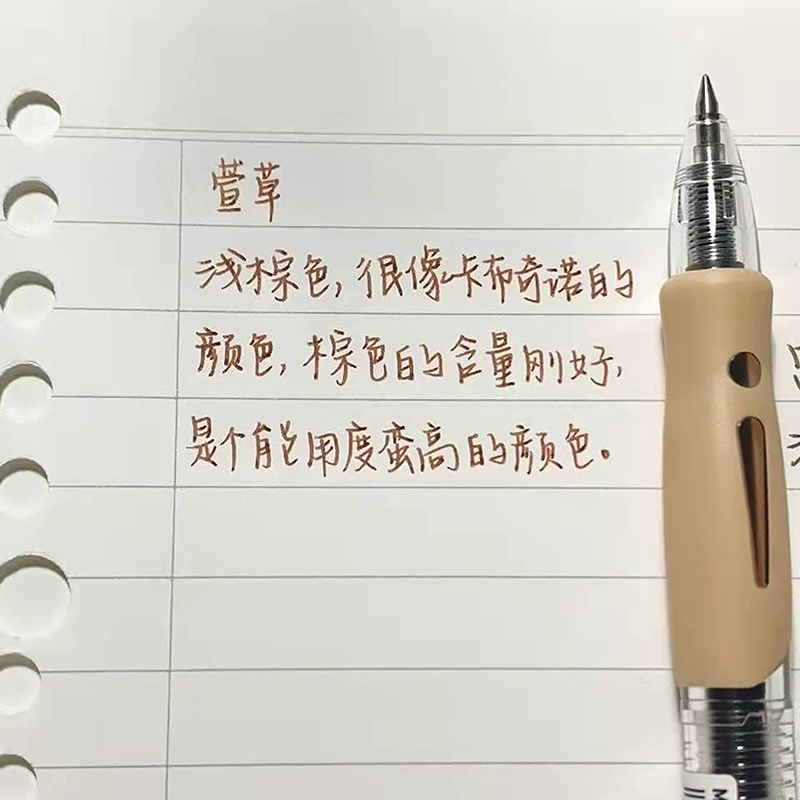 萱草
浅棕色,很像卡布奇诺的
颜色,棕色的含量刚好,
是个能用度蛮高的颜色。